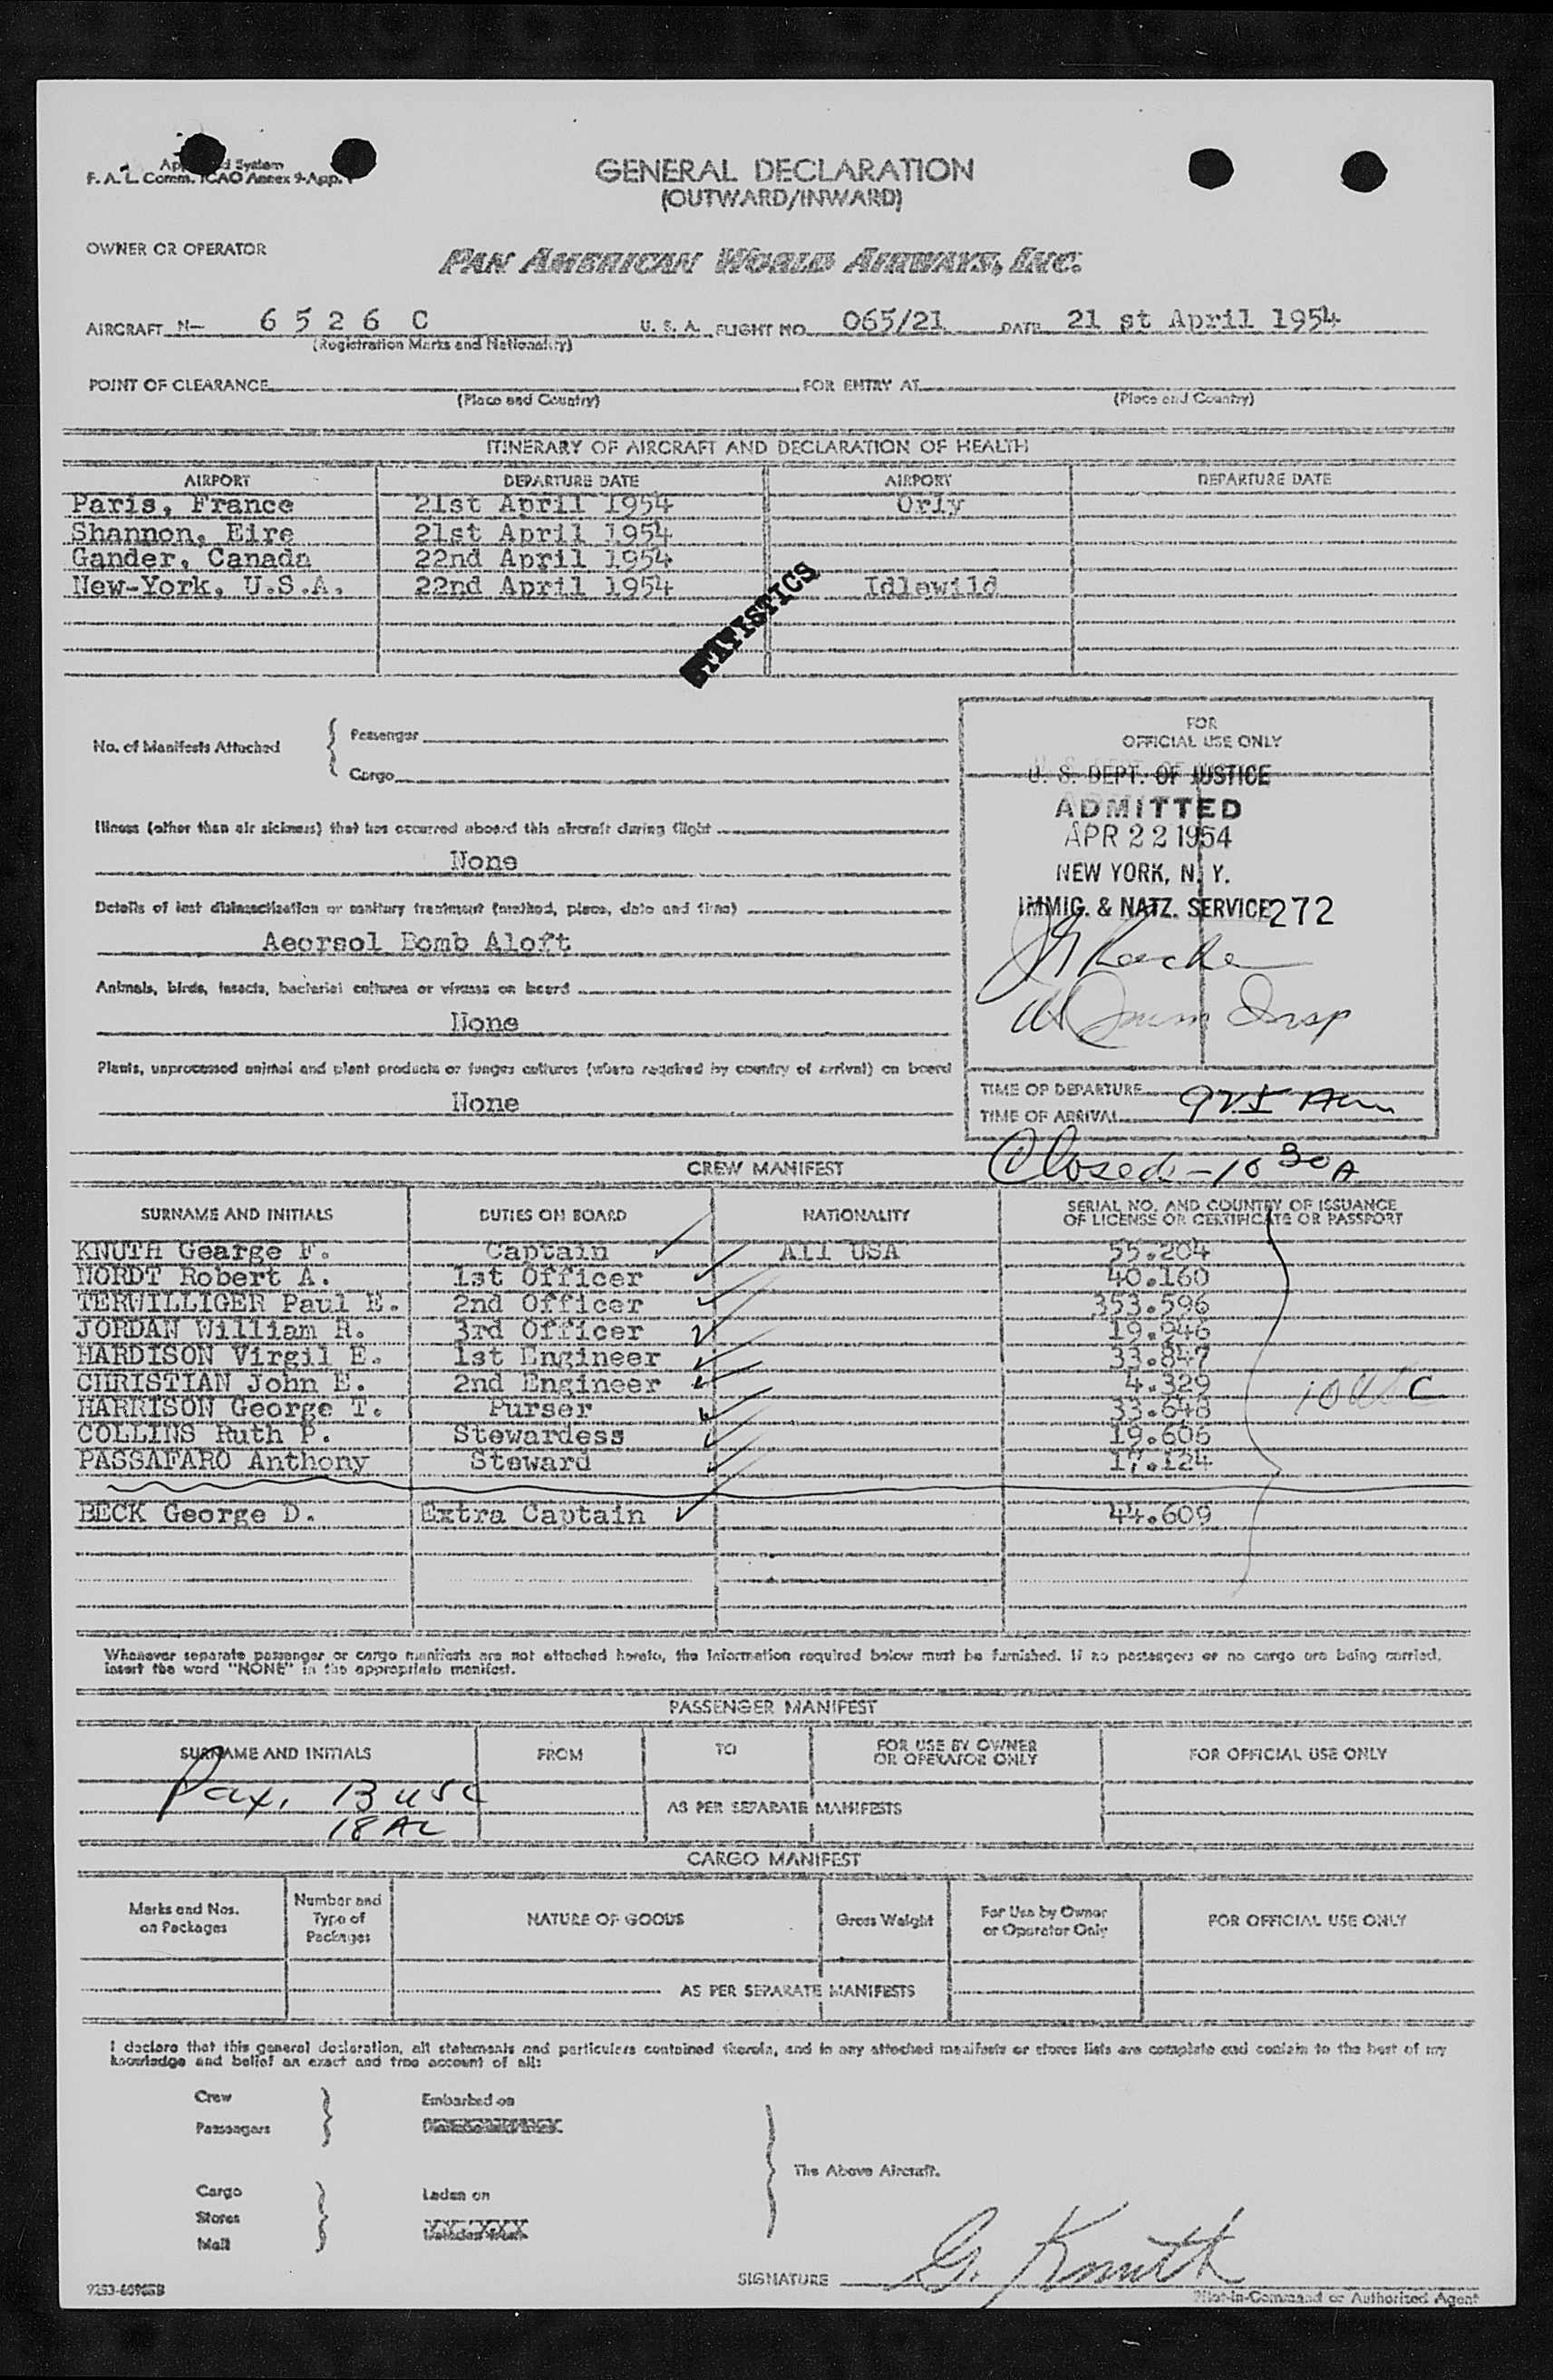 GENERAL DECLARATION
(OUTWARD/INWARD)
F. A. L. Comm. ICAO Annex 9-App. 1
OWNER OR OPERATOR PAN AMERICAN WORLD AIRWAYS, INC.
AIRCRAFT N- 6 5 2 6 C U. S. A. FLIGHT NO. 065/21 DATE 21 st April 1954
(Registration Marks and Nationality)
POINT OF CLEARANCE FOR ENTRY AT
(Place and Country) (Place and Country)
ITINERARY OF AIRCRAFT AND DECLARATION OF HEALTH
AIRPORT DEPARTURE DATE AIRPORT DEPARTURE DATE
Paris, France 21st April 1954 Orly
Shannon, Eire 21st April 1954
Gander, Canada 22nd April 1954
New-York, U.S.A. 22nd April 1954 Idlewild
STATISTICS
No. of Manifests Attached { Passenger
Cargo
FOR
OFFICIAL USE ONLY
U. S. DEPT. OF JUSTICE
ADMITTED
APR 22 1954
NEW YORK, N. Y.
IMMIG. & NATZ. SERVICE 272
Imm Insp
Illness (other than air sickness) that has occurred aboard this aircraft during flight
None
Details of last disinsectisation or sanitary treatment (method, place, date and time)
Aeorsol Bomb Aloft
Animals, birds, insects, bacterial cultures or viruses on board
None
Plants, unprocessed animal and plant products or fungus cultures (where required by country of arrival) on board
None
TIME OF DEPARTURE 925 Am
TIME OF ARRIVAL
Closed - 10 30 A
CREW MANIFEST
SURNAME AND INITIALS DUTIES ON BOARD NATIONALITY SERIAL NO. AND COUNTRY OF ISSUANCE
OF LICENSE OR CERTIFICATE OR PASSPORT
KNUTH Gearge F. Captain All USA 55.204
NORDT Robert A. 1st Officer 40.160
TERWILLIGER Paul E. 2nd Officer 353.596
JORDAN William R. 3rd Officer 19.946
HARDISON Virgil E. 1st Engineer 33.847
CHRISTIAN John E. 2nd Engineer 4.329 10 USC
HARRISON George T. Purser 33.648
COLLINS Ruth P. Stewardess 19.606
PASSAFARO Anthony Steward 17.124
BECK George D. Extra Captain 44.609
Whenever separate passenger or cargo manifests are not attached hereto, the information required below must be furnished. If no passengers or no cargo are being carried,
insert the word "NONE" in the appropriate manifest.
PASSENGER MANIFEST
SURNAME AND INITIALS FROM TO FOR USE BY OWNER
OR OPERATOR ONLY FOR OFFICIAL USE ONLY
Pax. 13 USC
18 AL
AS PER SEPARATE MANIFESTS
CARGO MANIFEST
Marks and Nos.
on Packages Number and
Type of
Packages NATURE OF GOODS Gross Weight For Use by Owner
or Operator Only FOR OFFICIAL USE ONLY
AS PER SEPARATE MANIFESTS
I declare that this general declaration, all statements and particulars contained therein, and in any attached manifests or stores lists are complete and contain to the best of my
knowledge and belief an exact and true account of all:
Crew Embarked on
Passengers
The Above Aircraft.
Cargo Laden on
Stores
Mail
SIGNATURE G. Knuth
Pilot-in-Command or Authorized Agent